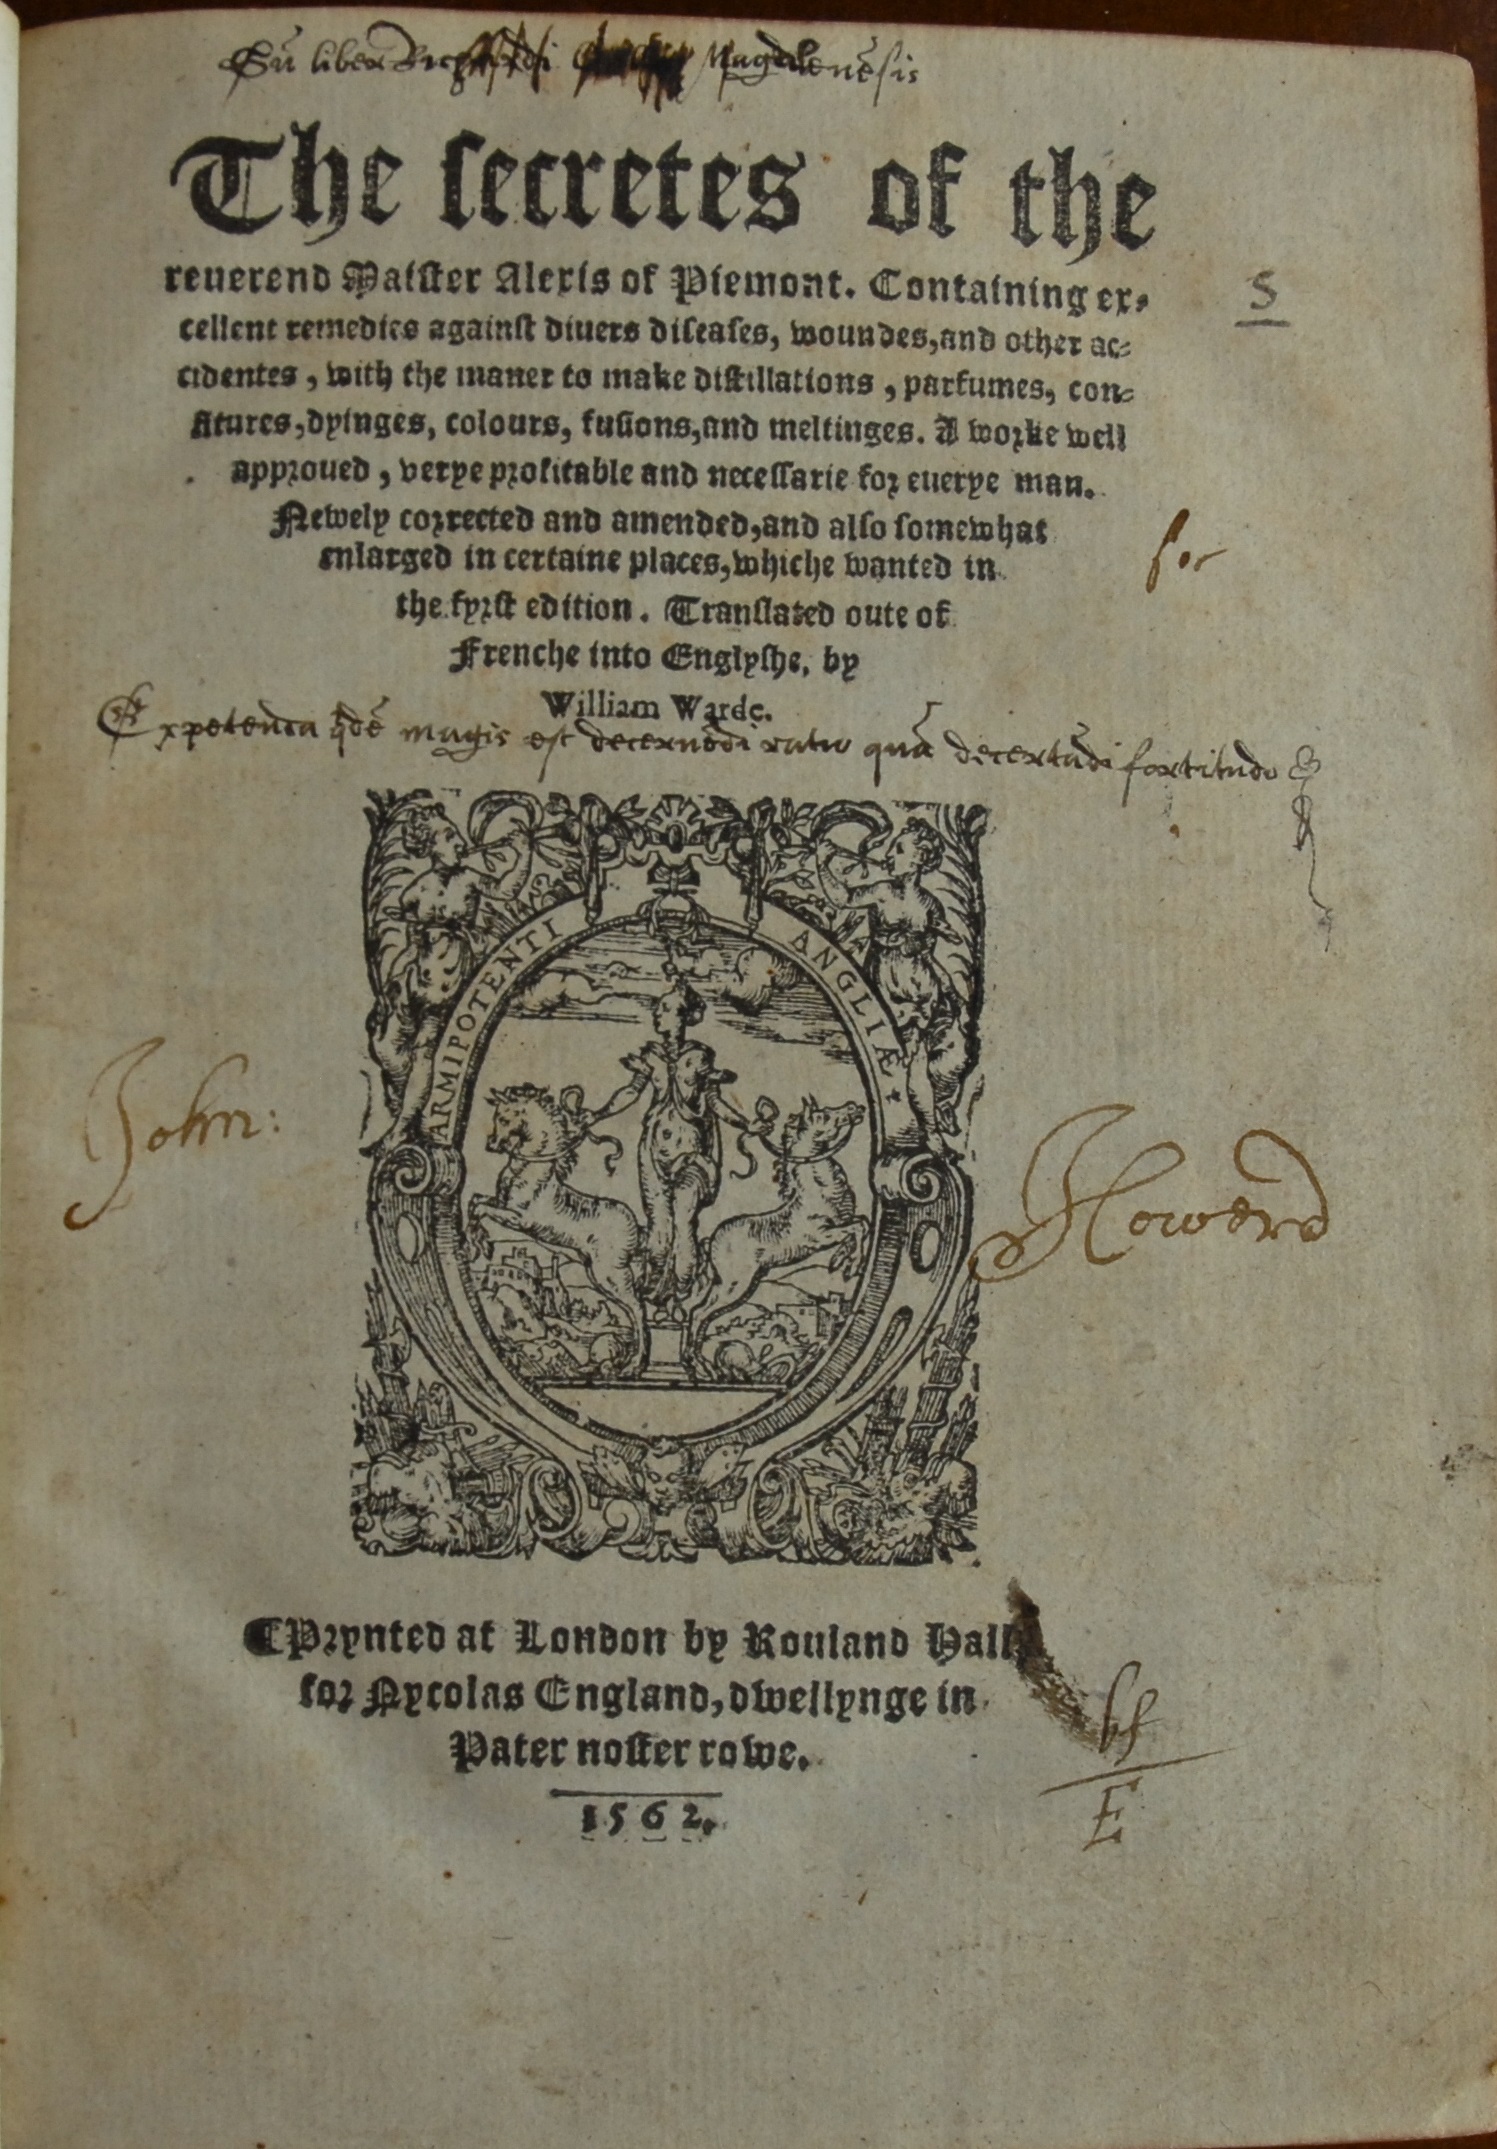 Sū liber Magdalenēsis
The secretes of the
reuerend Maister Alexis of Piemont. Containing ex-
cellent remedies against diuers diseases, woundes, and other ac-
cidentes, with the maner to make distillations, parfumes, con-
fitures, dyinges, colours, fusions, and meltinges. A worke well
approued, verye profitable and necessarie for euerye man.
Newely corrected and amended, and also somewhat
enlarged in certaine places, whiche wanted in
the fyrst edition. Translated oute of
Frenche into Englyshe, by
William Warde.
S
Expetenda qdē magis est decernēdi ratio quā decertādi fortitudo
ARMIPOTENTI ANGLIÆ
John: Howard
Prynted at London by Rouland Hall
for Nycolas England, dwellynge in
Pater noster rowe.
1562.
E